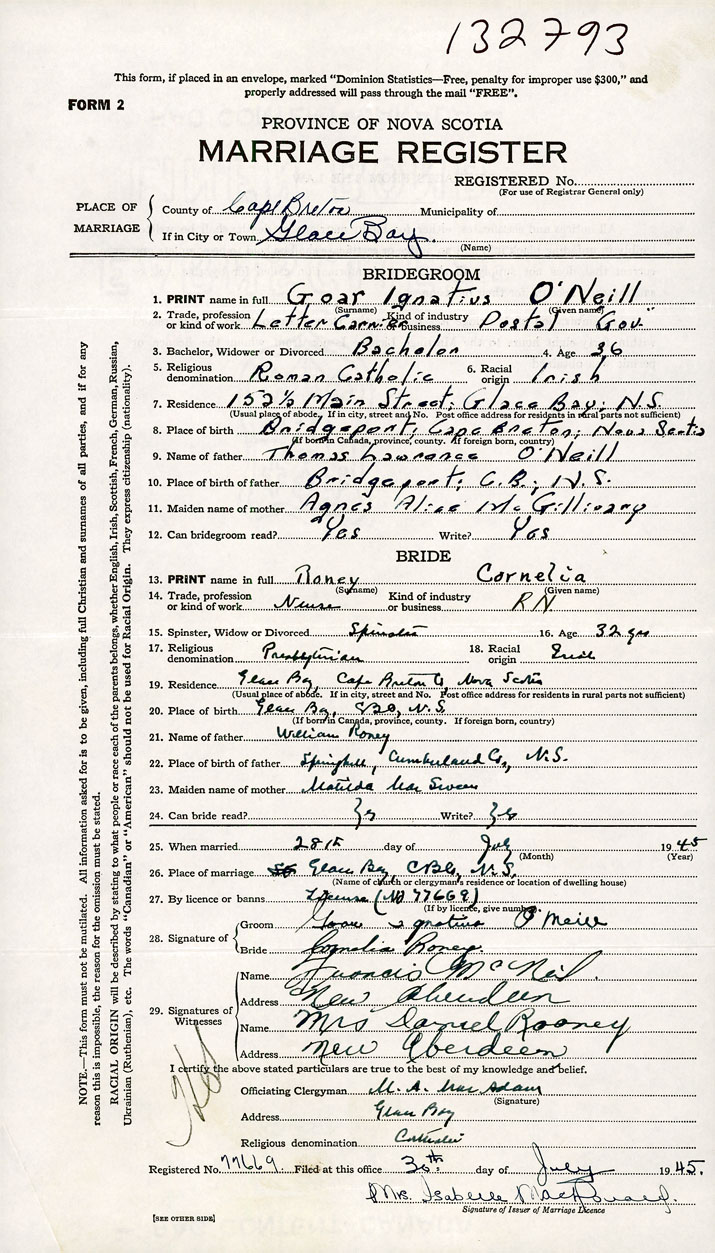 132793
This form, if placed in an envelope, marked "Dominion Statistics—Free, penalty for improper use $300," and
properly addressed will pass through the mail "FREE".
FORM 2
PROVINCE OF NOVA SCOTIA
MARRIAGE REGISTER
REGISTERED No.
(For use of Registrar General only)
PLACE OF MARRIAGE
County of Cape Breton Municipality of
If in City or Town Glace Bay.
(Name)
BRIDEGROOM
1. PRINT name in full Goar Ignatius O'Neill
(Surname) (Given name)
2. Trade, profession or kind of work Letter Carrier Kind of industry or business Postal Gov.
3. Bachelor, Widower or Divorced Bachelor 4. Age 36
5. Religious denomination Roman Catholic 6. Racial origin Irish
7. Residence 152½ Main Street, Glace Bay, N.S.
(Usual place of abode. If in city, street and No. Post office address for residents in rural parts not sufficient)
8. Place of birth Bridgeport, Cape Breton, Nova Scotia
(If born in Canada, province, county. If foreign born, country)
9. Name of father Thomas Lawrance O'Neill
10. Place of birth of father Bridgeport, C.B., N.S.
11. Maiden name of mother Agnes Alice McGillivary
12. Can bridegroom read? Yes Write? Yes
BRIDE
13. PRINT name in full Roney Cornelia
(Surname) (Given name)
14. Trade, profession or kind of work Nurse Kind of industry or business RN
15. Spinster, Widow or Divorced Spinster 16. Age 32 yrs
17. Religious denomination Presbyterian 18. Racial origin
19. Residence Glace Bay, Cape Breton Co Nova Scotia
(Usual place of abode. If in city, street and No. Post office address for residents in rural parts not sufficient)
20. Place of birth Glace Bay, CBCo, N.S.
(If born in Canada, province, county. If foreign born, country)
21. Name of father William Roney
22. Place of birth of father Springhill, Cumberland Co, N.S.
23. Maiden name of mother Matilda MacSween
24. Can bride read? Yes Write? Yes
25. When married 28th day of July 1945
(Month) (Year)
26. Place of marriage Glace Bay, CBCo, N.S.
(Name of church or clergyman's residence or location of dwelling house)
27. By licence or banns License (No 77669)
(If by licence, give number)
28. Signature of
Groom Goar Ignatius O'Neill
Bride Cornelia Roney.
29. Signatures of Witnesses
Name Francis McNeil.
Address New Aberdeen
Name Mrs Daniel Rooney
Address New Aberdeen
I certify the above stated particulars are true to the best of my knowledge and belief.
Officiating Clergyman M. A. MacAdam
(Signature)
Address Glace Bay
Religious denomination Catholic
Registered No. 77669. Filed at this office 30th. day of July 1945.
Mrs. Isabelle MacDonald.
Signature of Issuer of Marriage Licence
[SEE OTHER SIDE]
NOTE.—This form must not be mutilated. All information asked for is to be given, including full Christian and surnames of all parties, and if for any
reason this is impossible, the reason for the omission must be stated.
RACIAL ORIGIN will be described by stating to what people or race each of the parents belongs, whether English, Irish, Scottish, French, German, Russian,
Ukrainian (Ruthenian), etc. The words "Canadian" or "American" should not be used for Racial Origin. They express citizenship (nationality).